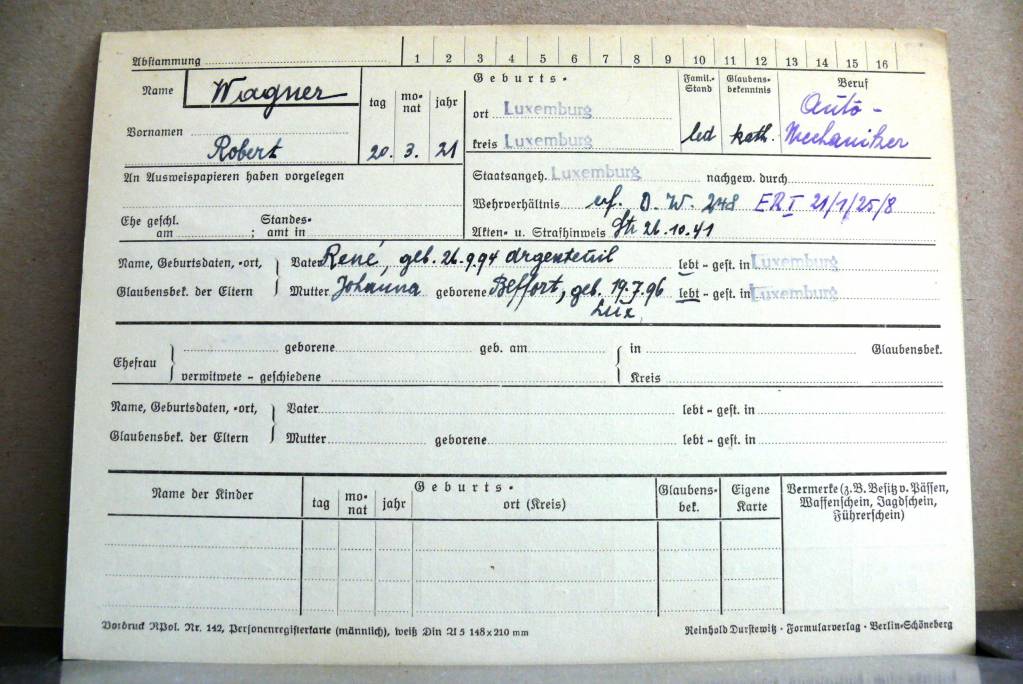 Abstammung 1 2 3 4 5 6 7 8 9 10 11 12 13 14 15 16
Name Wagner tag mo-nat jahr Geburts- Famil.-Stand Glaubens-bekenntnis Beruf
ort Luxemburg Auto-
Vornamen Robert 20. 3. 21 kreis Luxemburg led kath. Mechaniker
An Ausweispapieren haben vorgelegen Staatsangeh. Luxemburg nachgew. durch
Wehrverhältnis erf. D. W. 248 ERI 21/1/25/8
Ehe geschl. Standes-
am ; amt in Akten- u. Strafhinweis Str 26.10.41
Name, Geburtsdaten, -ort, Vater René, geb. 26.9.94 Argenteuil lebt - gest. in Luxemburg
Glaubensbek. der Eltern Mutter Johanna geborene Beffort, geb. 19.7.96 lebt - gest. in Luxemburg
Lux.
geborene geb. am in Glaubensbek.
Ehefrau
verwitwete - geschiedene Kreis
Name, Geburtsdaten, -ort, Vater lebt - gest. in
Glaubensbek. der Eltern Mutter geborene lebt - gest. in
Name der Kinder Geburts- Glaubens-bek. Eigene Karte Vermerke (z. B. Besitz v. Pässen,
tag mo-nat jahr ort (Kreis) Waffenschein, Jagdschein,
Führerschein)
Vordruck RPol. Nr. 142, Personenregisterkarte (männlich), weiß Din A 5 148 x 210 mm Reinhold Durstewitz · Formularverlag · Berlin-Schöneberg